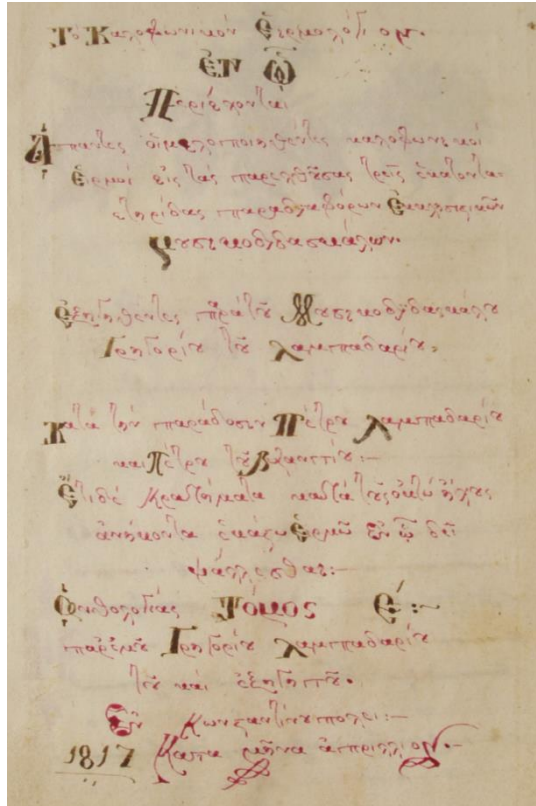 Τὸ Καλοφωνικὸν Εἱρμολόγιον.
ἐν ᾧ
Περιέχονται
Ἅπαντες οἱ μελοποιηθέντες καλοφωνικοί
Εἱρμοὶ εἰς τὰς παρελθούσας τρεῖς ἑκατοντα-
ετηρίδας παρὰ διαφόρων Ἐκκλησιαστικῶν
Μουσικοδιδασκάλων.
ἐξηγηθέντες παρὰ τοῦ Μουσικοδιδασκάλου
Γρηγορίου τοῦ Λαμπαδαρίου.
Κατὰ τὴν παράδοσιν Πέτρου Λαμπαδαρίου
καὶ Πέτρου τοῦ Βυζαντίου:—
Ἔτι δὲ Κρατήματα κατὰ τοὺς ὀκτὼ ἤχους
ἀνήκοντα ἑκάστῳ Εἱρμῷ ἐν ᾧ δεῖ
ψάλλεσθαι:—
Ἀνθολογίας Τόμος Ε΄:~
παρ' ἐμοῦ Γρηγορίου Λαμπαδαρίου
τοῦ καὶ ἐξηγητοῦ.
Ἐν Κωνσταντινουπόλει:—
1817 Κατὰ μῆνα ἀπρίλλιον.—